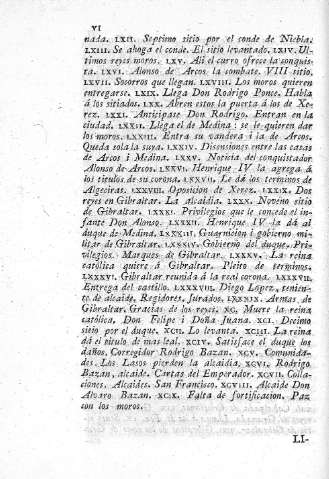 VI
nada. LXII. Septimo sitio por el conde de Niebla.
LXIII. Se ahoga el conde. El sitio levantado. LXIV. Ul-
timos reyes moros. LXV. Alí el curro ofrece la conquis-
ta. LXVI. Alonso de Arcos la combate. VIII sitio.
LXVII. Socorros que llegan. LXVIII. Los moros quieren
entregarse. LXIX. Llega Don Rodrigo Ponce. Habla
á los sitiados. LXX. Abren estos la puerta á los de Xe-
rez. LXXI. Anticipase Don Rodrigo. Entran en la
ciudad. LXXII. Llega el de Medina: se le quieren dar
los moros. LXXIII. Entra su vandera i la de Arcos.
Queda sola la suya. LXXIV. Disensiones entre las casas
de Arcos i Medina. LXXV. Noticia del conquistador
Alonso de Arcos. LXXVI. Henrique IV la agrega á
los titulos de su corona. LXXVII. Le dá los terminos de
Algeciras. LXXVIII. Oposicion de Xerez. LXXIX. Dos
reyes en Gibraltar. La alcaidia. LXXX. Noveno sitio
de Gibraltar. LXXXI. Privilegios que le concede el in-
fante Don Alonso. LXXXII. Henrique IV la dá al
duque de Medina. LXXXIII. Guarnicion i gobierno mi-
litar de Gibraltar. LXXXIV. Gobierno del duque. Pri-
vilegios. Marques de Gibraltar. LXXXV. La reina
católica quiere á Gibraltar. Pleito de terminos.
LXXXVI. Gibraltar reunida á la real corona. LXXXVII.
Entrega del castillo. LXXXVIII. Diego Lopez, tenien-
te de alcaide. Regidores, Jurados. LXXXIX. Armas de
Gibraltar. Gracias de los reyes. XC. Muere la reina
católica. Don Felipe i Doña Juana. XCI. Decimo
sitio por el duque. XCII. Lo levanta. XCIII. La reina
dá el titulo de mas leal. XCIV. Satisface el duque los
daños. Corregidor Rodrigo Bazan. XCV. Comunida-
des. Los Lasos pierden la alcaidia. XCVI. Rodrigo
Bazan, alcaide. Cartas del Emperador. XCVII. Colla-
ciones. Alcaides. San Francisco. XCVIII. Alcaide Don
Alvaro Bazan. XCIX. Falta de fortificacion. Paz
con los moros.
LI-